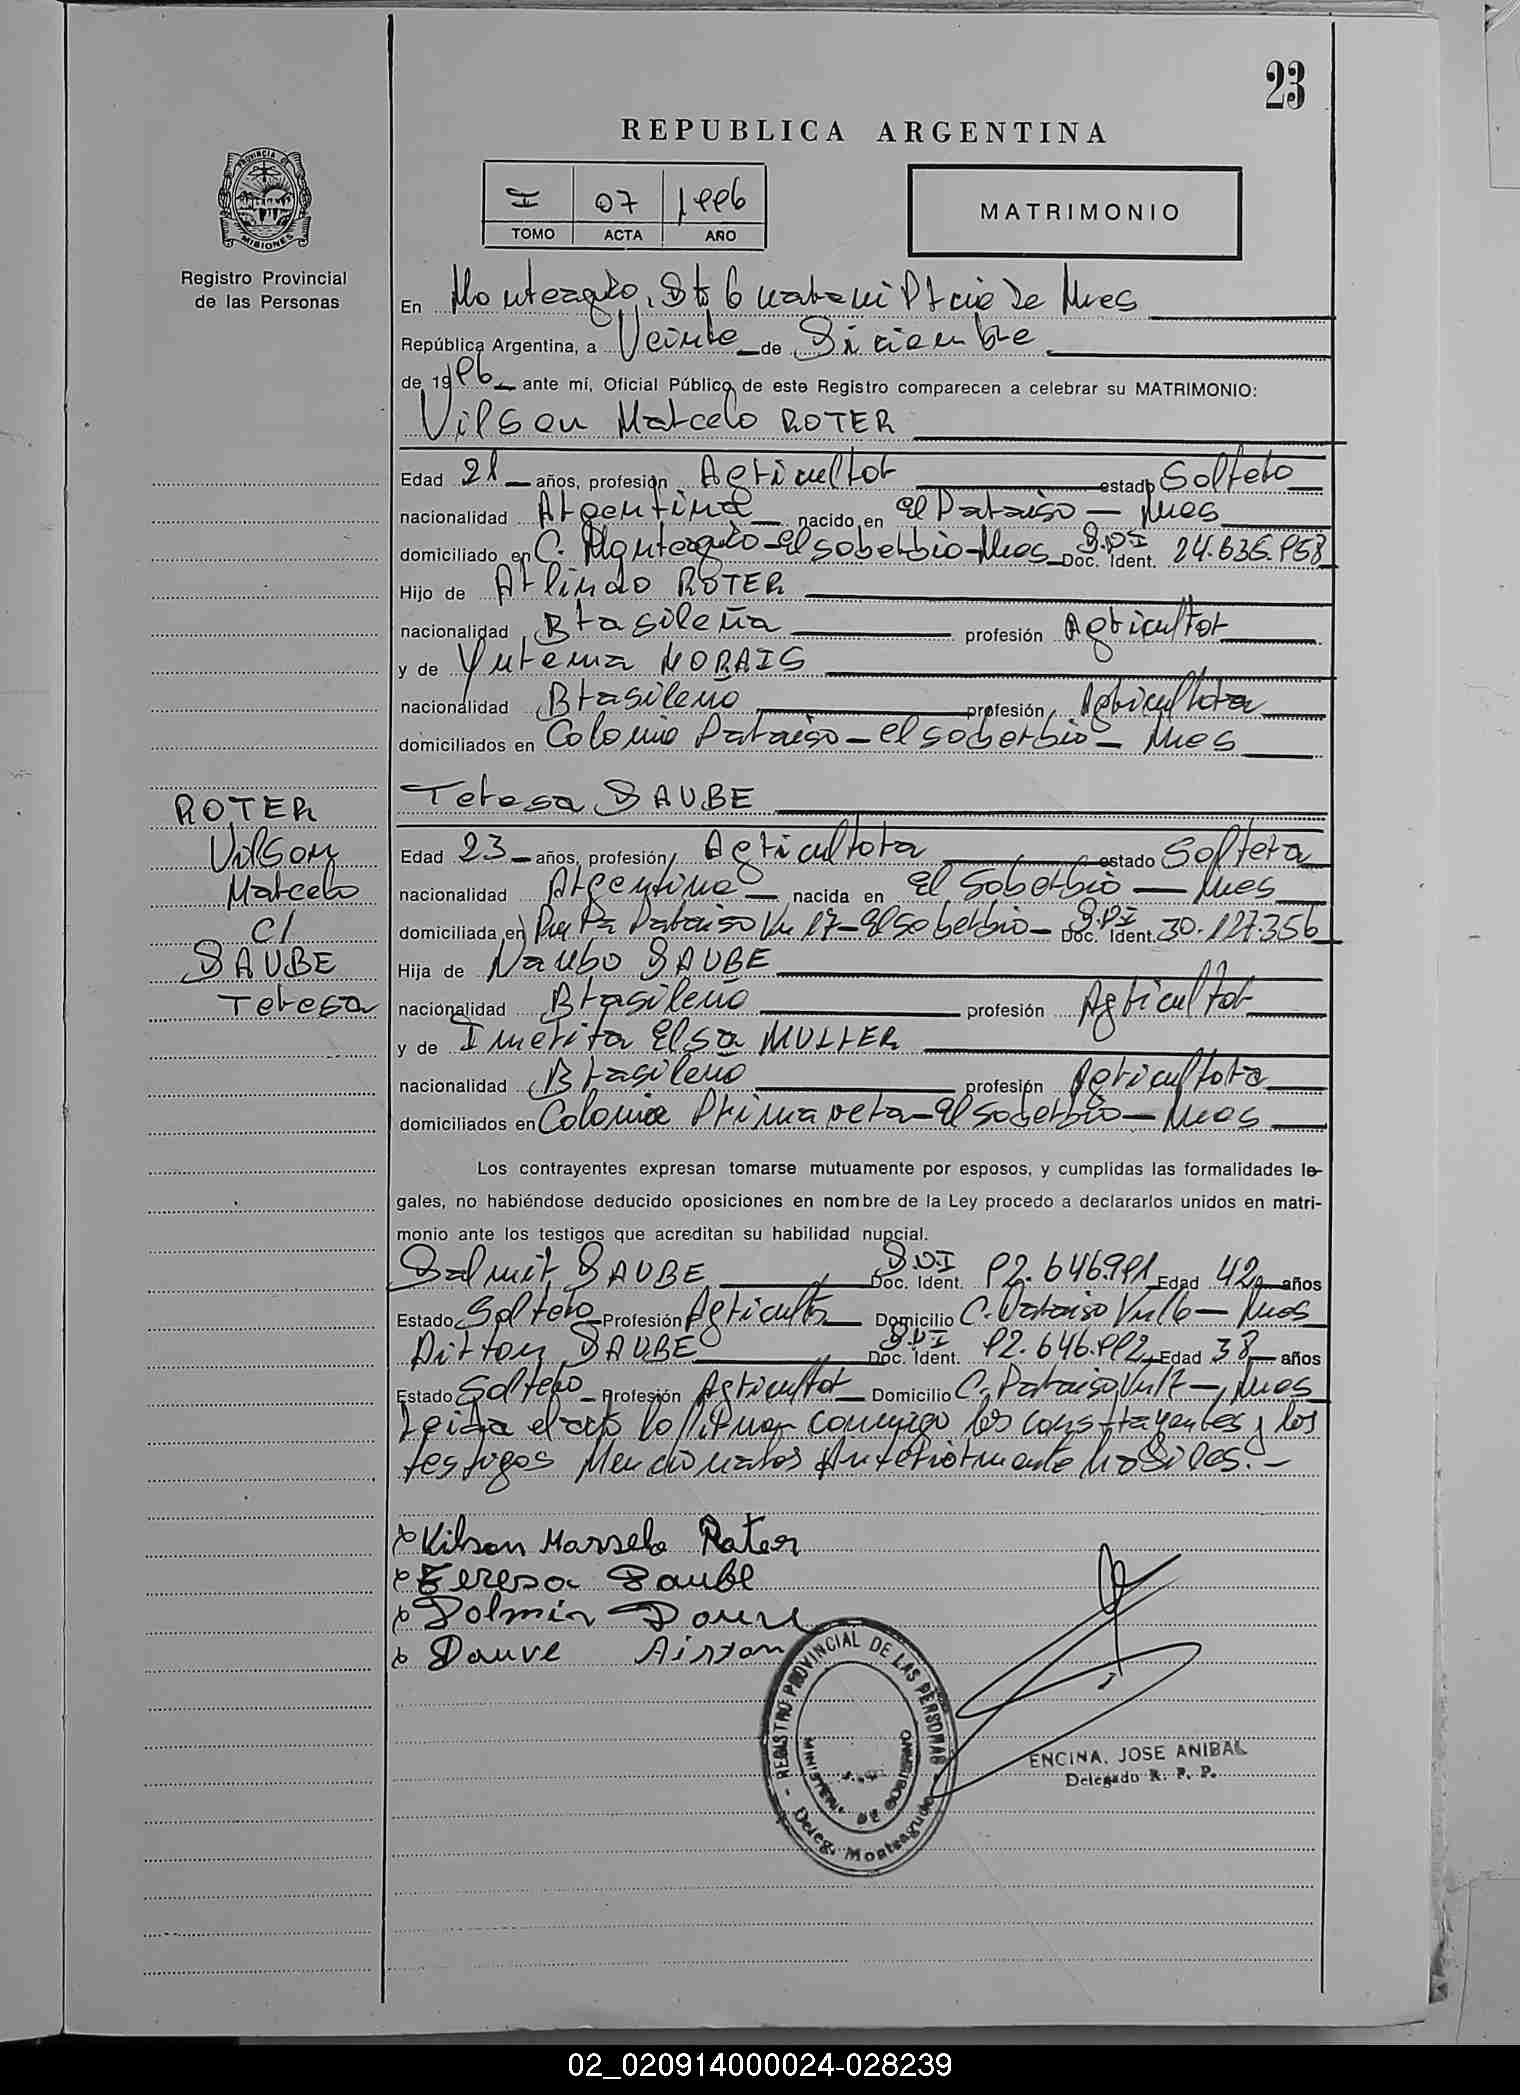 23
REPUBLICA ARGENTINA
I 07 1996
TOMO ACTA AÑO
MATRIMONIO
PROVINCIA DE MISIONES
Registro Provincial
de las Personas
En Monteagudo, Dto Guarani Pcia de Mnes
República Argentina, a Veinte de Diciembre
de 1996 ante mí, Oficial Público de este Registro comparecen a celebrar su MATRIMONIO:
Vilson Marcelo ROTER
Edad 21 años, profesión Agricultor estado Soltero
nacionalidad Argentina nacido en El Paraiso - Mnes
domiciliado en C. Monteagudo - El soberbio - Mnes D.N.I Doc. Ident. 24.635.958
Hijo de Arlindo ROTER
nacionalidad Brasileña profesión Agricultor
y de MORAIS
nacionalidad Brasileña profesión Agricultora
domiciliados en Colonia Paraiso - El soberbio - Mnes
Teresa DAUBE
Edad 23 años, profesión Agricultora estado Soltera
nacionalidad Argentina nacida en El Soberbio - Mnes
domiciliada en Paraiso Km 17 - El soberbio - D.N.I Doc. Ident. 30.127.356
Hija de DAUBE
nacionalidad Brasileña profesión Agricultor
y de Elsa MULLER
nacionalidad Brasileña profesión Agricultora
domiciliados en Colonia Primavera - El soberbio - Mnes
ROTER
Vilson
Marcelo
C/
DAUBE
Teresa
Los contrayentes expresan tomarse mutuamente por esposos, y cumplidas las formalidades le-
gales, no habiéndose deducido oposiciones en nombre de la Ley procedo a declararlos unidos en matri-
monio ante los testigos que acreditan su habilidad nupcial.
DAUBE D.N.I Doc. Ident. 92.646.991 Edad 42 años
Estado Soltero Profesión Agricultor Domicilio C. Paraiso Km 16 - Mnes
Airton DAUBE D.N.I Doc. Ident. 92.646.992 Edad 38 años
Estado Soltero Profesión Agricultor Domicilio C. Paraiso Km 17 - Mnes
Leida el acta la firman conmigo los contrayentes y los
testigos Mencionados Anteriormente hábiles.-
x Vilson Marselo Roter
x Teresa Daube
x Dolmir
x Dauve Airton
REGISTRO PROVINCIAL DE LAS PERSONAS
MINISTERIO DE GOBIERNO
Deleg. Monteagudo
ENCINA, JOSE ANIBAL
Delegado R. P. P.
02_020914000024-028239